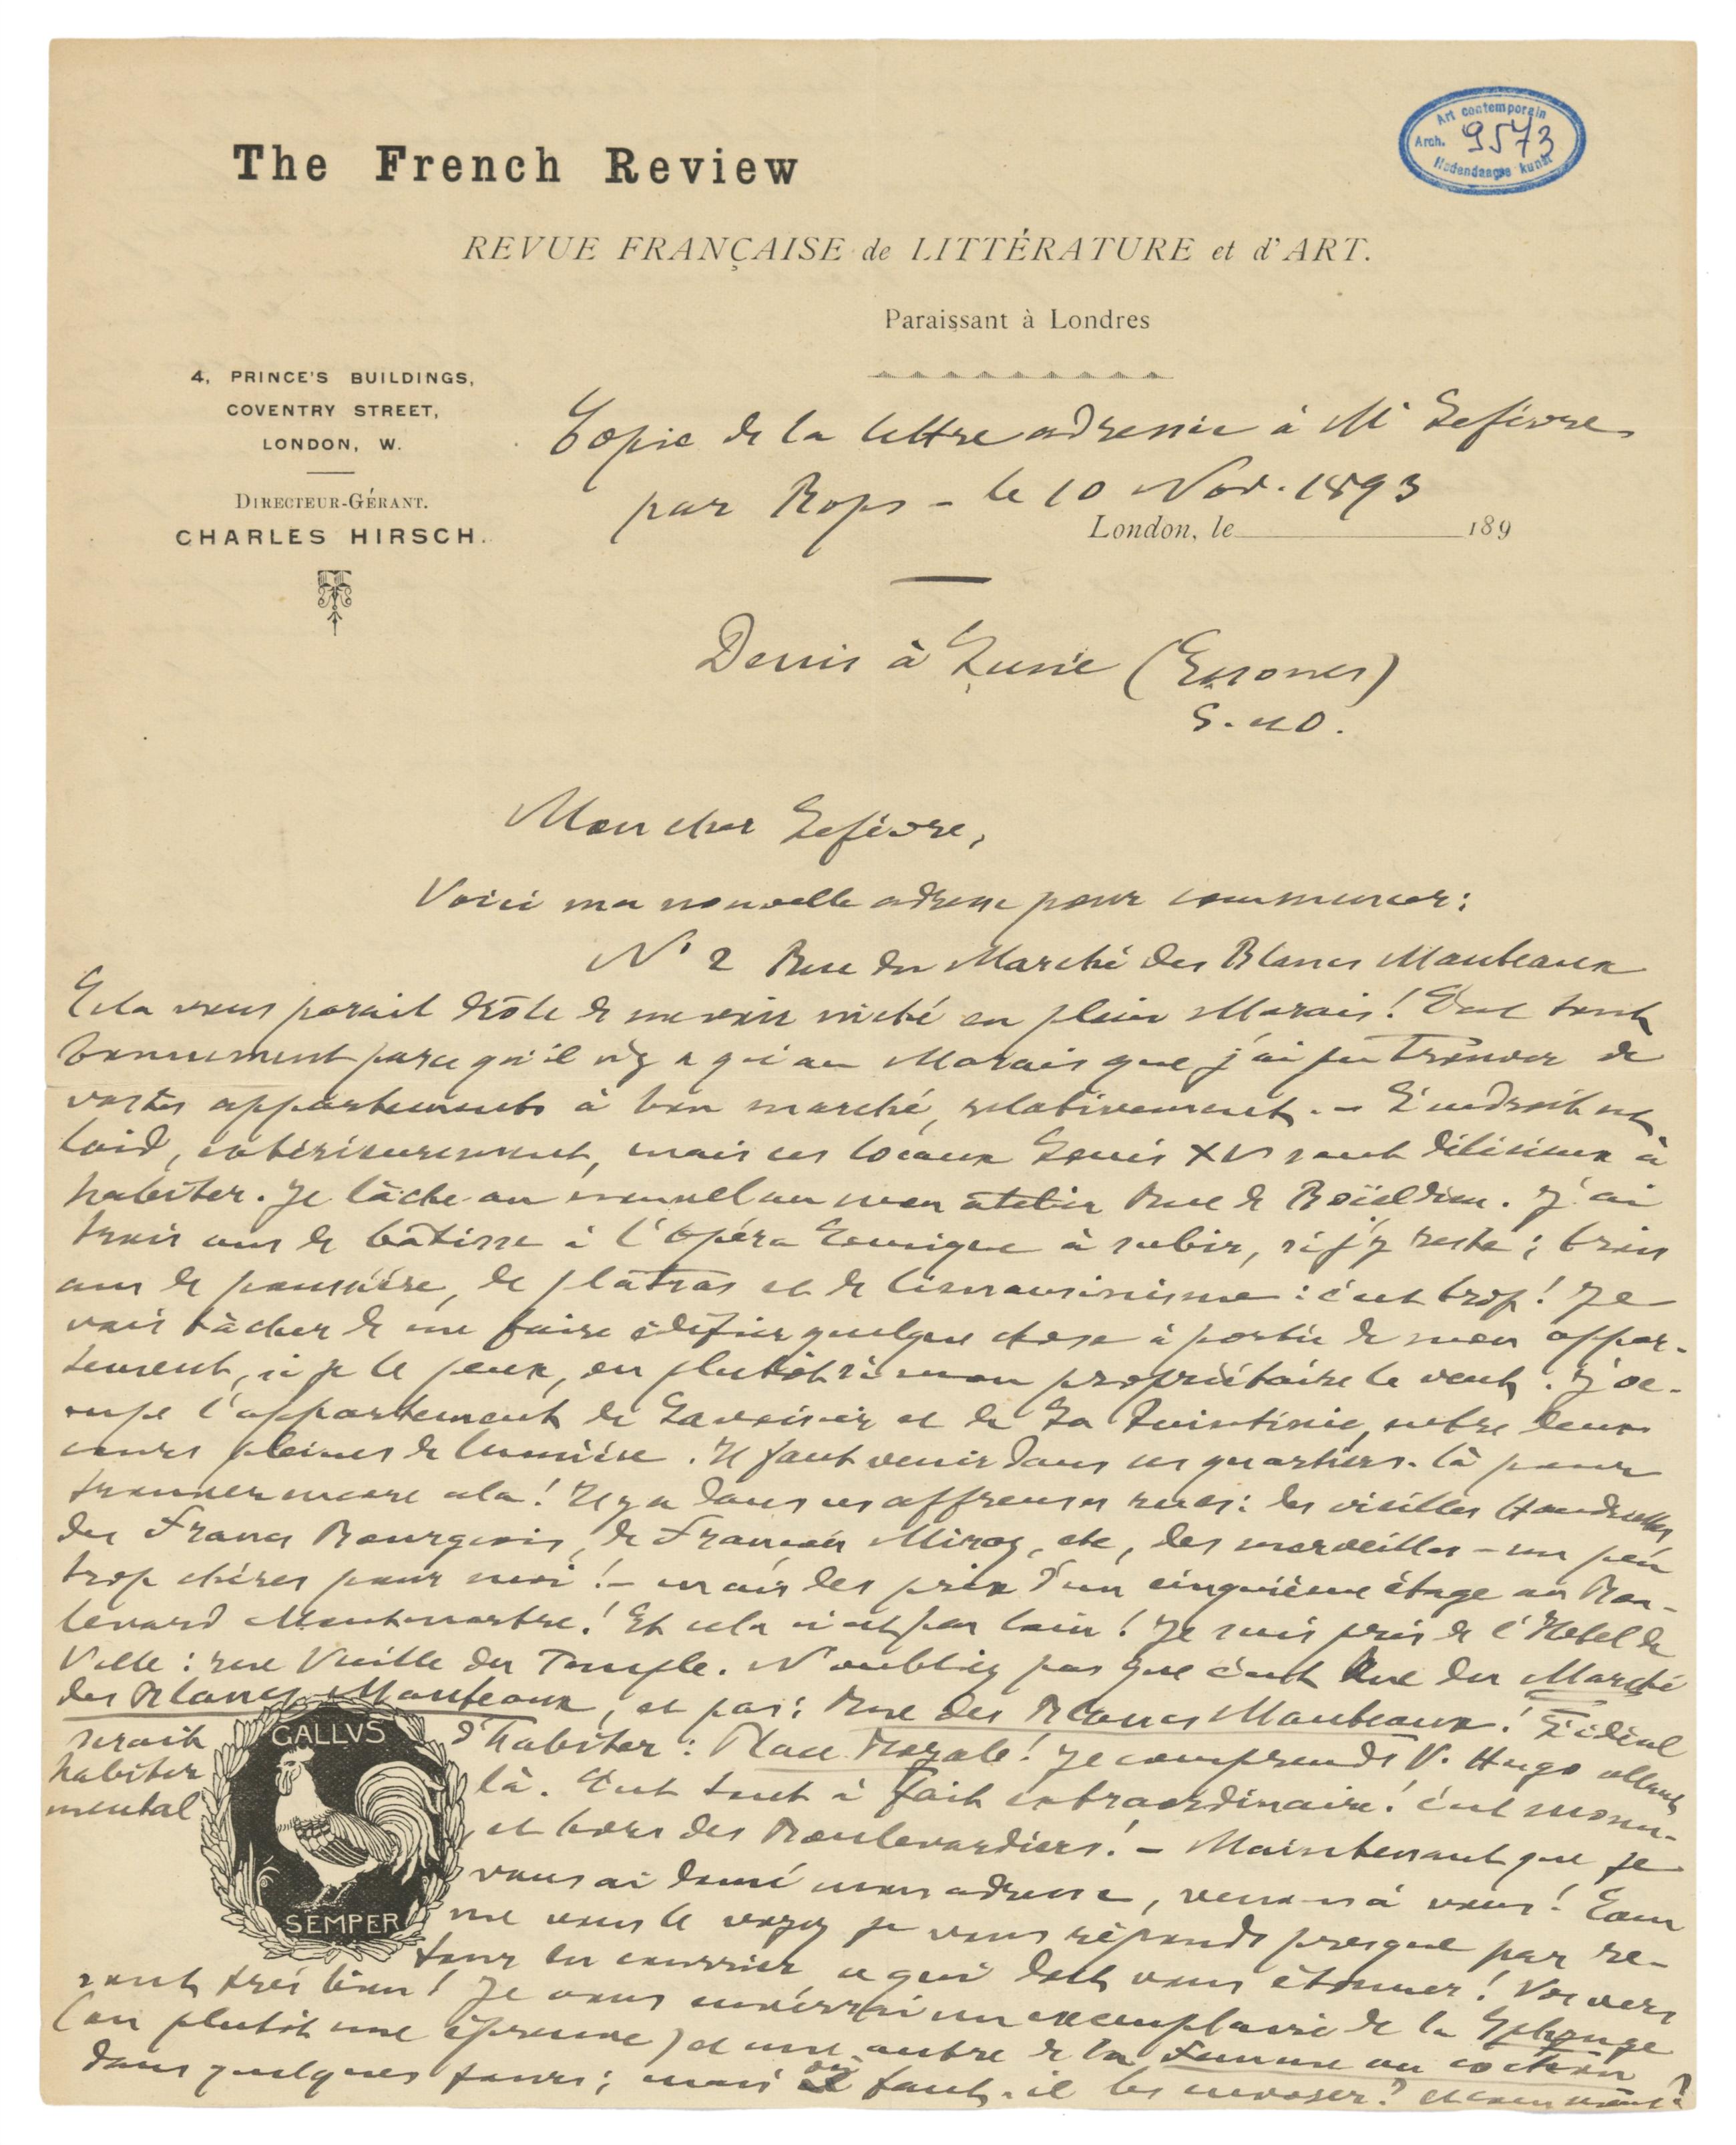 The French Review
Art contemporain
Arch. 9573
Hedendaagse kunst
REVUE FRANÇAISE de LITTÉRATURE et d'ART.
Paraissant à Londres
4, PRINCE'S BUILDINGS,
COVENTRY STREET,
LONDON, W.
DIRECTEUR-GÉRANT.
CHARLES HIRSCH.
Copie de la lettre adressée à Mr Lefèvre
par Rops - le 10 Nov. 1893
London, le 189
Demi à Lune (Essonnes)
S. et O.
Mon cher Lefèvre,
Voici ma nouvelle adresse pour commencer:
N° 2 Rue du Marché des Blancs Manteaux
Cela vous parait drôle de me voir niché en plein Marais! C'est tout
bonnement parce qu'il n'y a qu'au Marais que j'ai pu trouver de
vastes appartements à bon marché, relativement. - L'endroit est
laid, extérieurement, mais ces locaux Louis XV sont délicieux à
habiter. Je lâche au nouvel an mon atelier Rue de Boïeldieu. J'ai
trois ans de bâtisse à l'Opéra Comique à subir, si j'y reste; trois
ans de poussière, de plâtras et de limousinisme: c'est trop! Je
vais tâcher de me faire édifier quelque chose à portée de mon appar-
tement, si je le peux, ou plutôt si mon propriétaire le veut. J'oc-
cupe l'appartement de Lavoisier et de La Quintinie, entre deux
cours pleines de lumière. Il faut venir dans ces quartiers-là pour
trouver encore cela! Il y a dans ces affreuses rues: des vieilles Haudriettes
des Francs Bourgeois, de François Miron, etc, des merveilles - un peu
trop chères pour moi! - mais des prix d'un cinquième étage au Bou-
levard Montmartre! Et cela n'est pas loin! Je suis près de l'Hotel de
Ville: rue Vieille du Temple. N'oubliez pas que c'est Rue du Marché
des Blancs Manteaux, et pas: Rue des Blancs Manteaux! L'idéal
serait d'habiter: Place Royale! Je comprends V. Hugo allant
habiter là. C'est tout à fait extraordinaire! c'est monu-
mental, et hors des Boulevardiers! - Maintenant que je
vous ai donné mon adresse, venons à vous! Com
me vous le voyez je vous réponds presque par re-
tour du courrier, ce qui doit vous étonner! Vos vers
sont très bien! Je vous enverrai un exemplaire de la Sphynge
(ou plutôt une épreuve) et une autre de la Femme au cochon
dans quelques jours; mais où faut-il les envoyer? et comment?
GALLVS
SEMPER